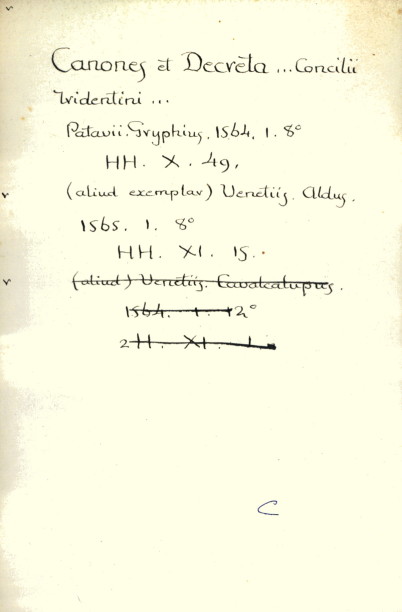 Canones et Decreta ... Concilii
Tridentini ...
Patavii. Gryphius, 1564, 1. 8°
HH. X. 49,
(aliud exemplar) Venetiis. Aldus.
1565. 1. 8°
HH. XI. 15.
(aliud) Venetiis. Cavalcalupus.
1564. 1. 12°
2 H. XI. 1.
C